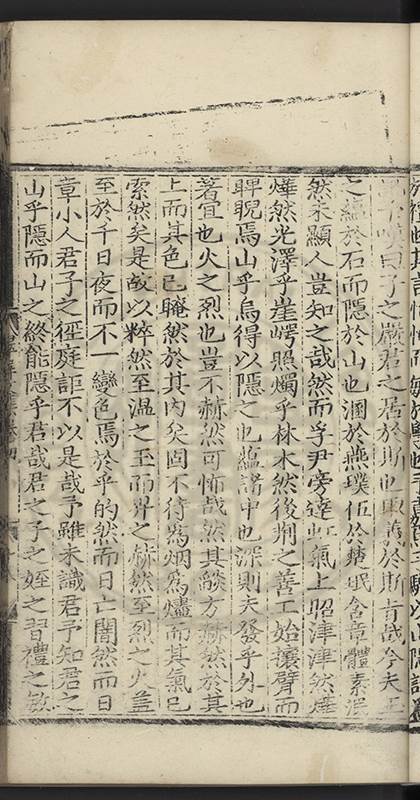 曰子之巖君之居於斯也取義於斯肯哉今夫玉
之蘊於石而隱於山也溷於燕璞伍於楚珉含章體素混
然未顯人豈知之哉然而孚尹旁達虹氣上昭津津然燁
燁然光澤乎崖崿照燭乎林木然後荆之善工始攘臂而
睥睨焉山乎烏得以隱之也蘊諸中也深則夫發乎外也
著宜也火之烈也豈不赫然可怖哉然其燄方赫然於其
上而其色已晻然於其內矣固不待爲烟爲燼而其氣已
索然矣是故以粹然至溫之玉而畀之赫然至烈之火盖
至於千日夜而不一變色焉於乎的然而日亡闇然而日
章小人君子之徑庭詎不以是哉予雖未識君予知君之
山乎隱而山之終能隱乎君哉君之子之姪之習禮之敏